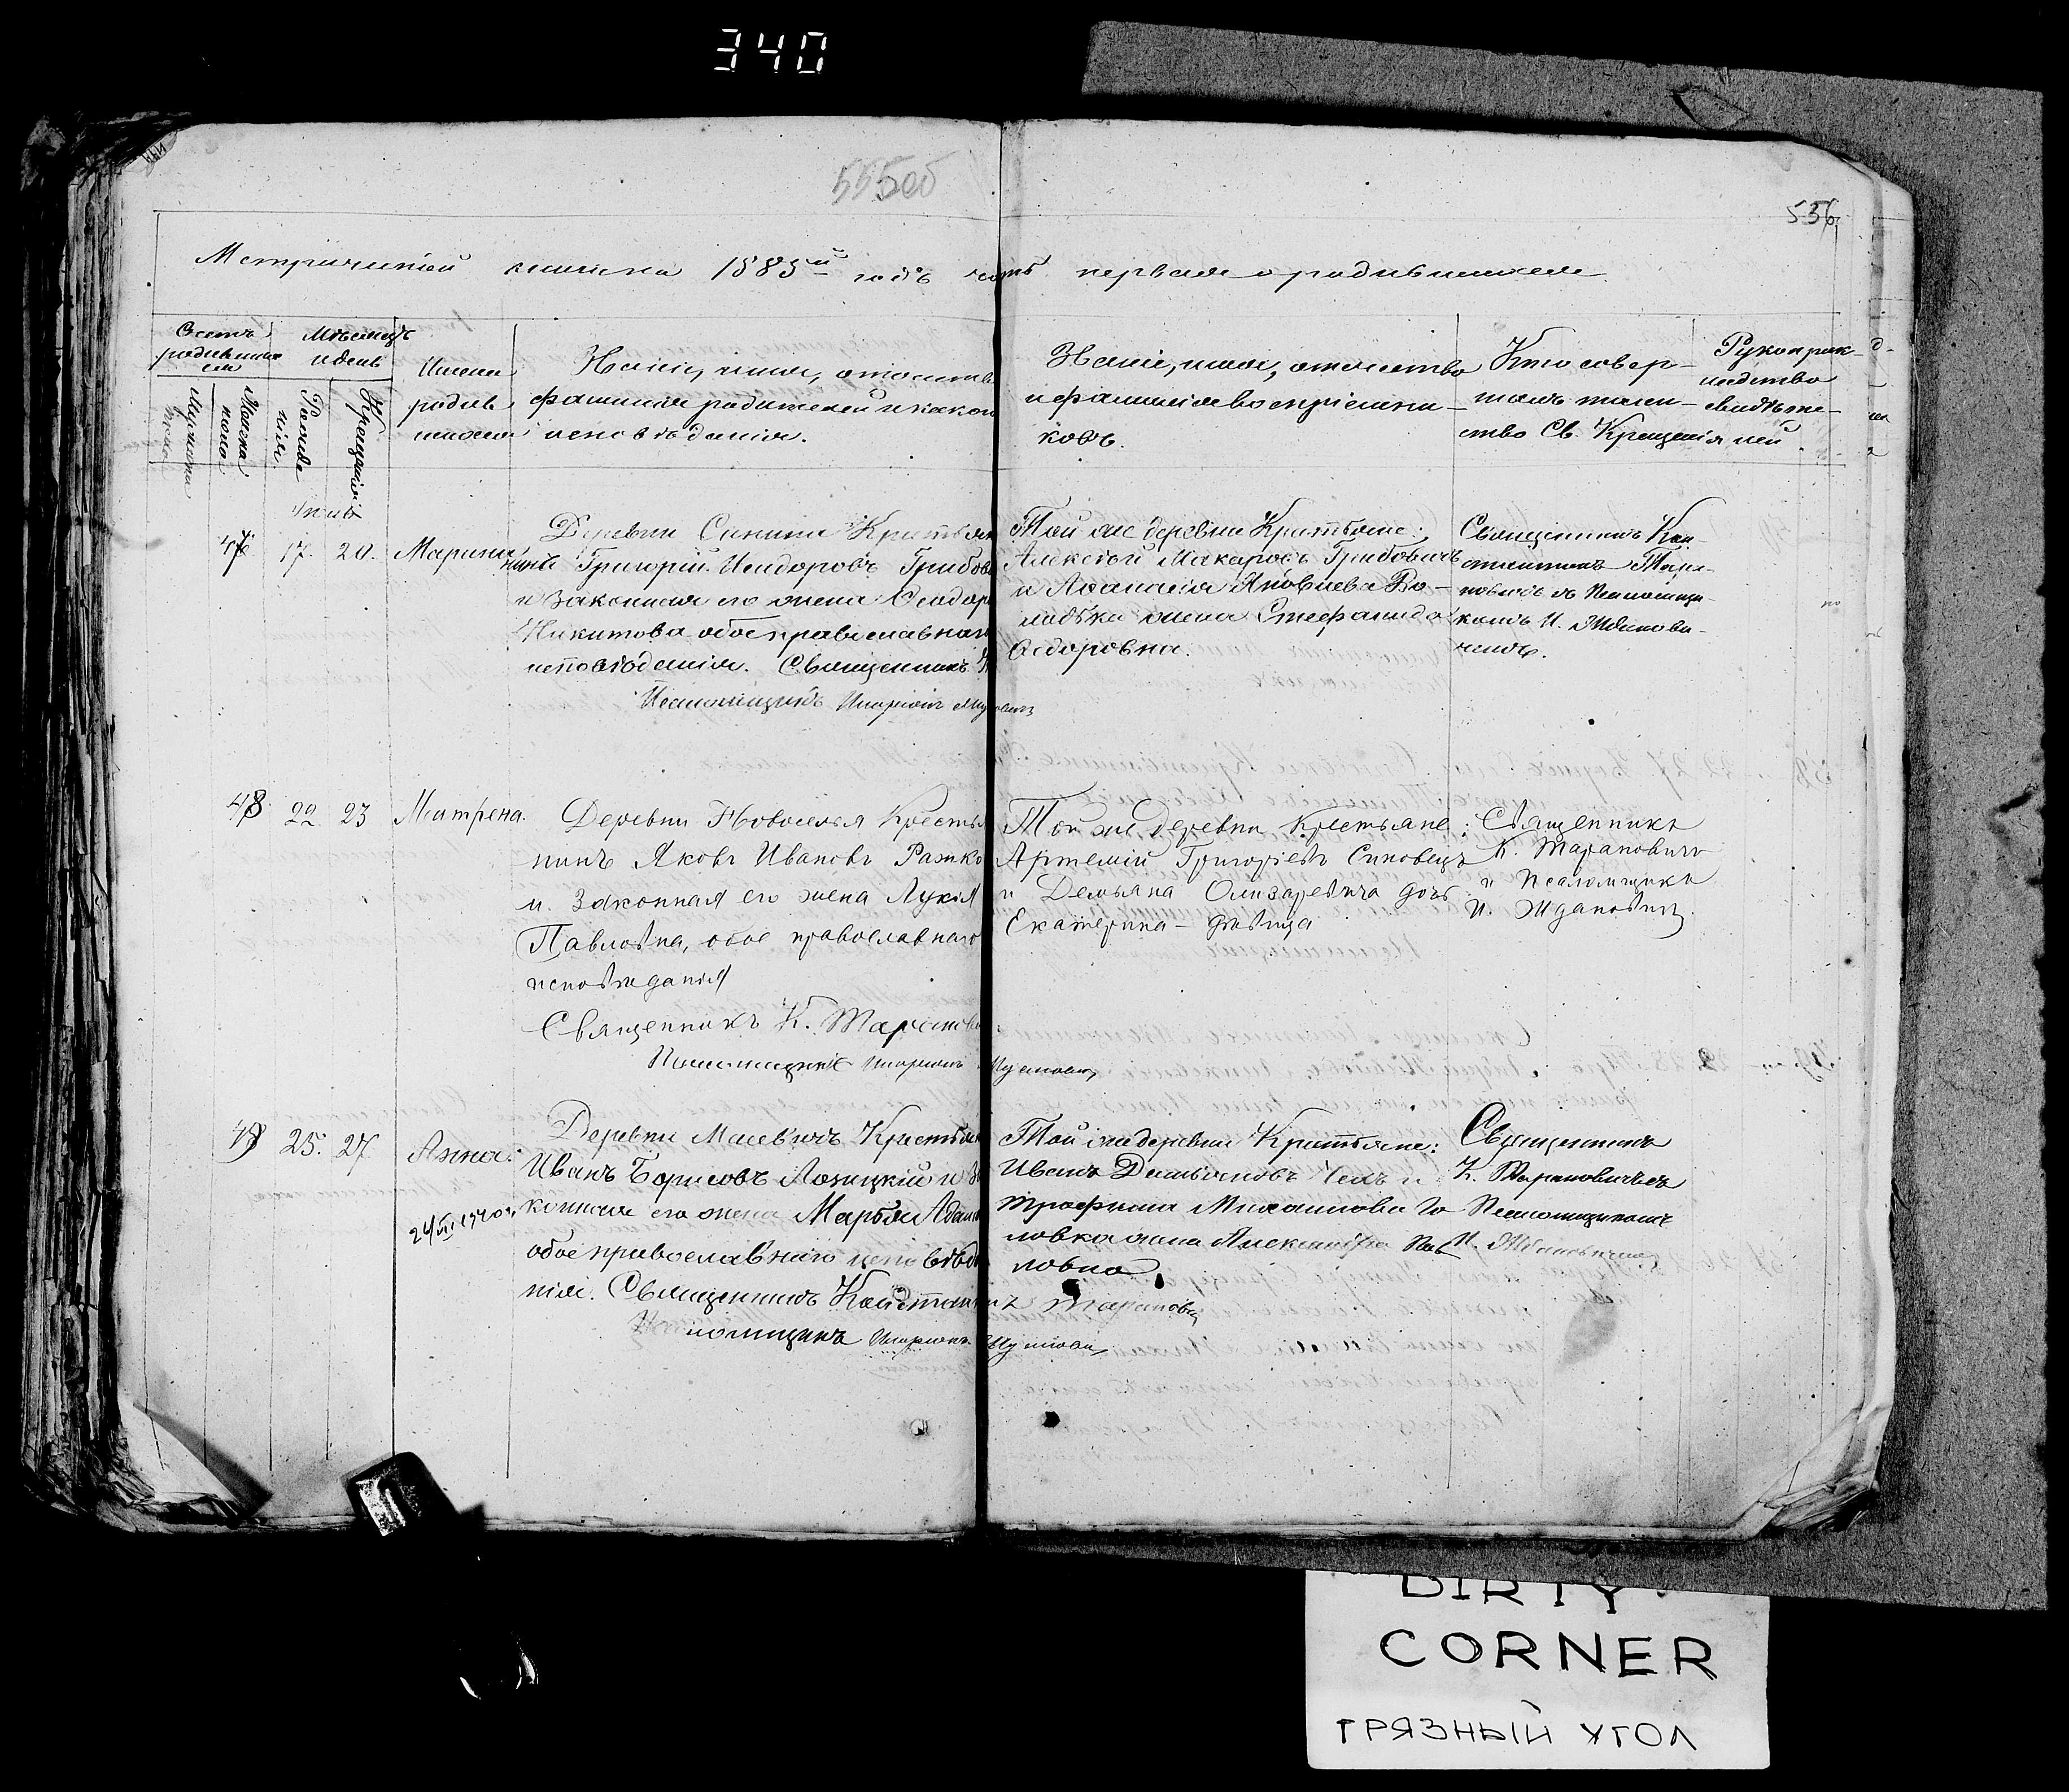 340
555об
556
Метрической книги на 1885й годъ часть первая о родившихся
Счетъ родившихся
Мѣсяцъ и день
Имена родившихся
Званіе, имя, отчество,
фамилія родителей и какого
исповѣданія.
Званіе, имя, отчество
и фамилія воспріемни-
ковъ.
Кто совер-
шалъ таин-
ство Св. Крещенія
Рукоприк-
ладство
свидѣте-
лей
Мужска пола
Женска пола
Рожденія
Крещенія
47 17. 20. Марина
Деревни Синина Крестьян
нинъ Григорій Исидоровъ Грибов
и законная его жена Ѳеодор
Никитова обое православнаго
исповѣданія. Священникъ
Псаломщикъ Иларіонъ
Той же деревни Крестьяне:
Алексѣй Макаровъ Грибовичъ
и Аѳанасія Яковлева Во-
лодѣка жена Стефанида
Ѳедоровна.
Священникъ Кон-
стантинъ Тара-
новичъ съ Псаломщи-
комъ И. Жданови-
чемъ.
48 22 23 Матрена.
Деревни Новоселья Крестья
нинъ Яковъ Ивановъ Ражко
и законная его жена Лукія
Павловна, обое православнаго
исповѣданія
Священникъ К. Таранов
Псаломщикъ Иларіонъ
Той же деревни Крестьяне:
Артемій Григорьевъ Синовецъ
и Демьяна Олизаревича дочь
Екатерина – дѣвица
Священникъ
К. Тарановичъ
и Псаломщикъ
И. Ждановичъ.
49 25. 27 Анна.
24/VII 1940 г.
Деревни Масевичъ Крестьян
Иванъ Борисовъ Лозицкій и за
конная его жена Марья Адам
обое православнаго исповѣда
нія. Священникъ Константинъ Таранович
Псаломщикъ Иларіонъ
Той же деревни Крестьяне:
Иванъ Демьяновъ Чехъ и
Трофима Михаилова Го
ловка жена Александра Пав
ловна.
Священникъ
К. Тарановичъ съ
Псаломщикомъ
И. Ждановичемъ
DIRTY
CORNER
ГРЯЗНЫЙ УГОЛ